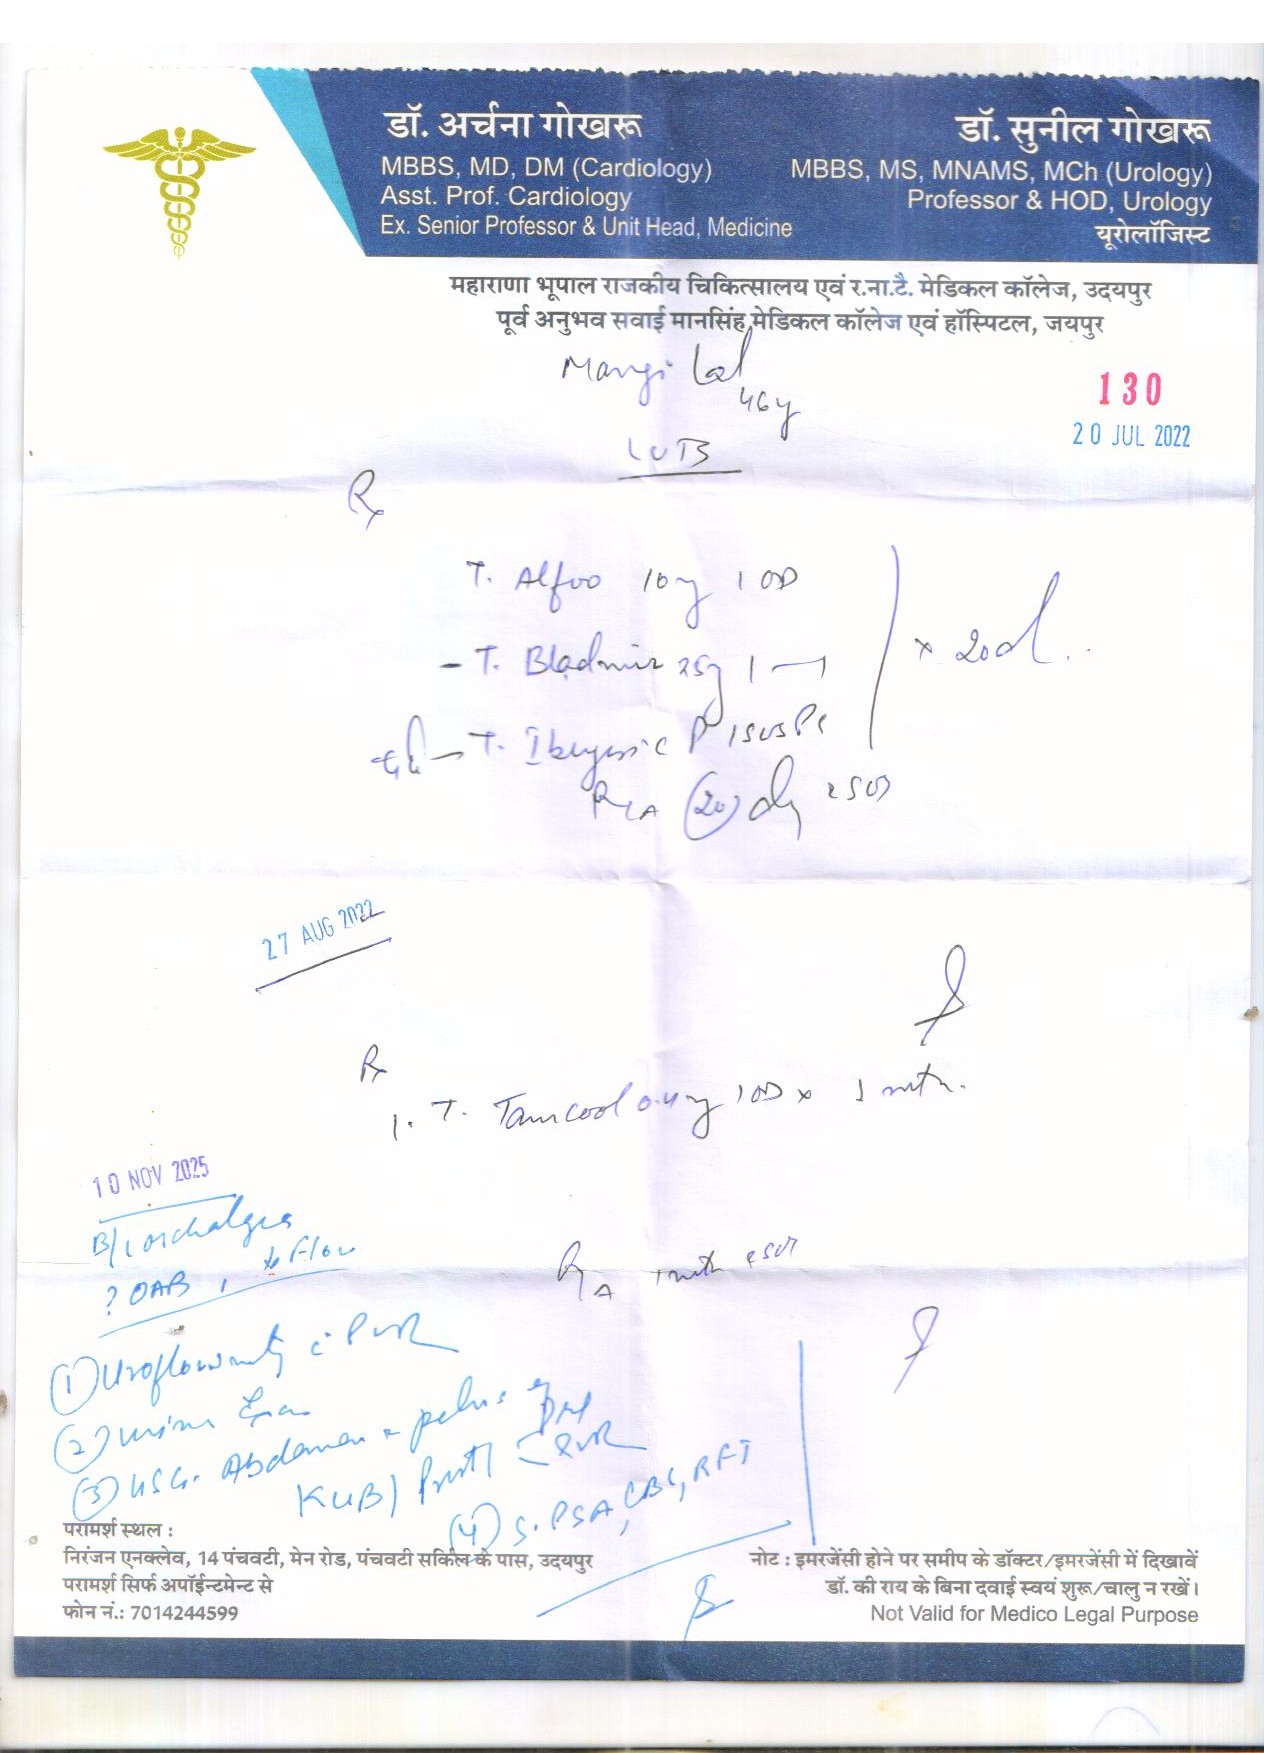 डॉ. अर्चना गोखरू
MBBS, MD, DM (Cardiology)
Asst. Prof. Cardiology
Ex. Senior Professor & Unit Head, Medicine
डॉ. सुनील गोखरू
MBBS, MS, MNAMS, MCh (Urology)
Professor & HOD, Urology
यूरोलॉजिस्ट
महाराणा भूपाल राजकीय चिकित्सालय एवं र.ना.टै. मेडिकल कॉलेज, उदयपुर
पूर्व अनुभव सवाई मानसिंह मेडिकल कॉलेज एवं हॉस्पिटल, जयपुर
Mangi Lal
46y
130
20 JUL 2022
LUTS
Rx
T. Alfoo 10mg 1 OD
- T. Bladmir 25mg 1
x 20d
T. P 1 SOS
(20) d
27 AUG 2022
Rx
1. T. Tamcool 0.4mg 1 OD x 1 mth.
10 NOV 2025
B/L orchalgia
? OAB, Flow
1 mth
(1) Uroflowmetry c PVR
(2) Urine
(3) USG. Abdomen & pelvis
KUB) Prost c PVR
(4) S. PSA, CBC, RFT
परामर्श स्थल :
निरंजन एनक्लेव, 14 पंचवटी, मेन रोड, पंचवटी सर्किल के पास, उदयपुर
परामर्श सिर्फ अपॉईन्टमेन्ट से
फोन नं.: 7014244599
नोट : इमरजेंसी होने पर समीप के डॉक्टर/इमरजेंसी में दिखावें
डॉ. की राय के बिना दवाई स्वयं शुरू/चालु न रखें।
Not Valid for Medico Legal Purpose